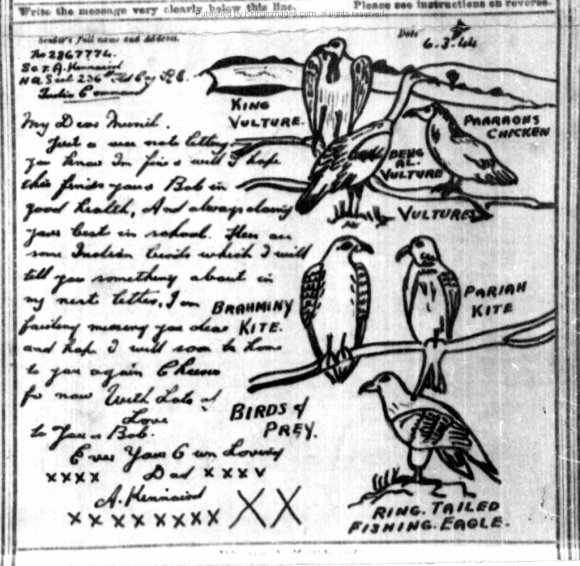 Write the message very clearly below this line.
Please see instructions on reverse.
Sender's full name and address.
Date 6.3.44
No 2867774.
Sgt. A. Kennaird
India Command
My Dear Muriel.
Just a wee note letting
you know Im fine & well I hope
this finds you & Bob in
good health, And always doing
your best in school. Here are
some Indian birds which I will
tell you something about in
my next letter. I am
missing you dear
and hope I will soon be home
to you again Cheerio
for now With Lots of
Love
to You & Bob.
Ever Your Own Loving
xxxx Dad xxxx
A. Kennaird
xxxxxxxx XX
KING
VULTURE.
PHARAOHS
CHICKEN
BENG
AL.
VULTURE
VULTURES
BRAHMINY
KITE.
PARIAH
KITE
BIRDS of
PREY.
RING. TAILED
FISHING. EAGLE.